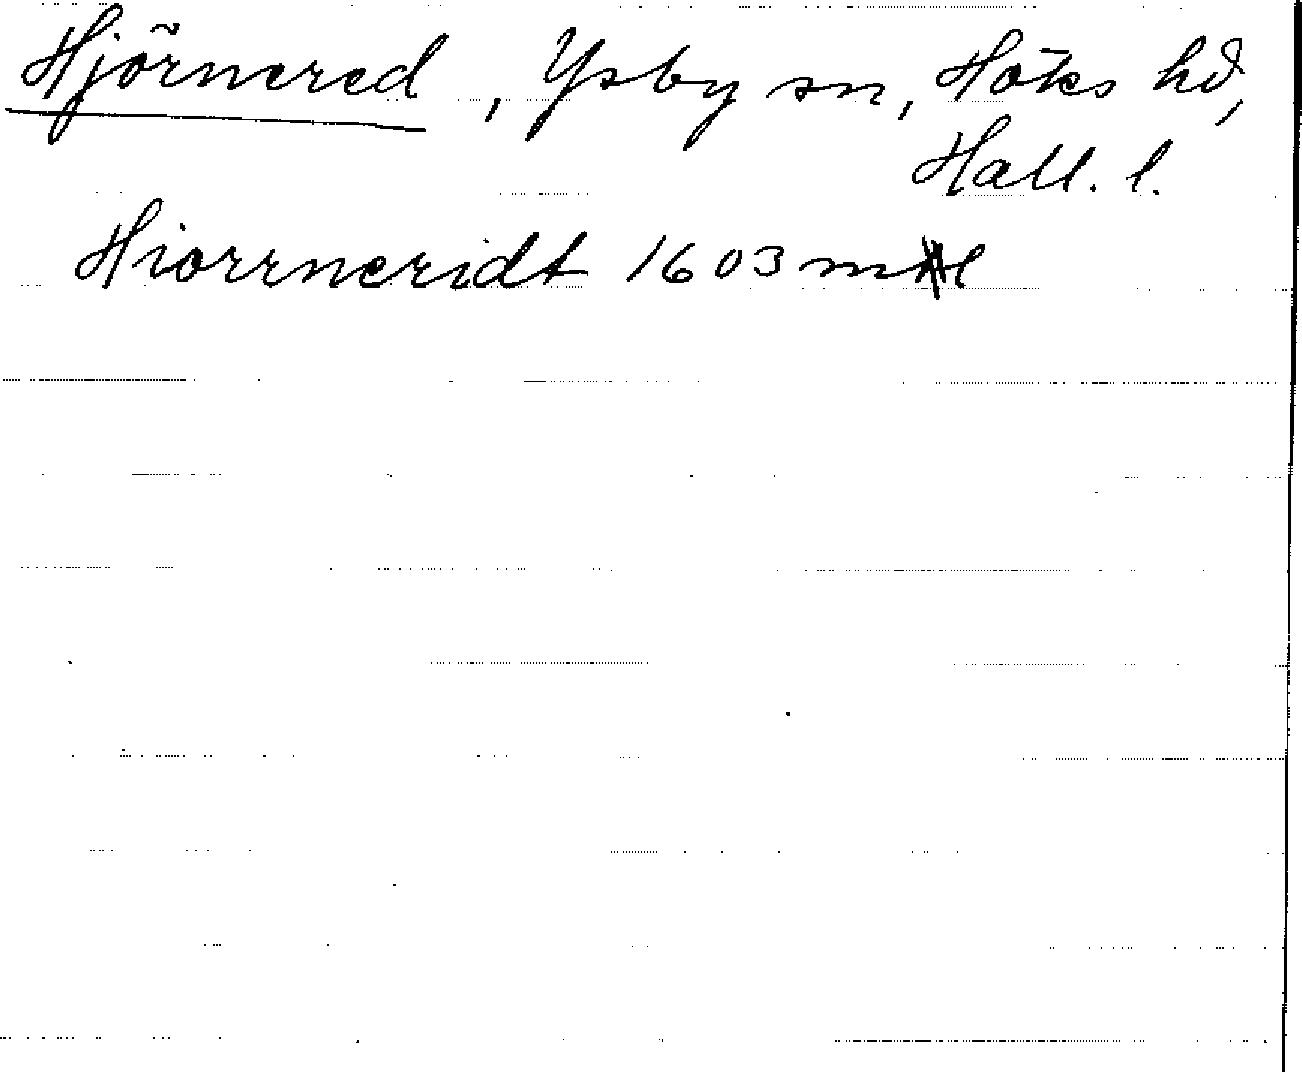 Hjörnered, Ysby sn, Höks hd,
Hall. l.
Hiorrneridt 1603